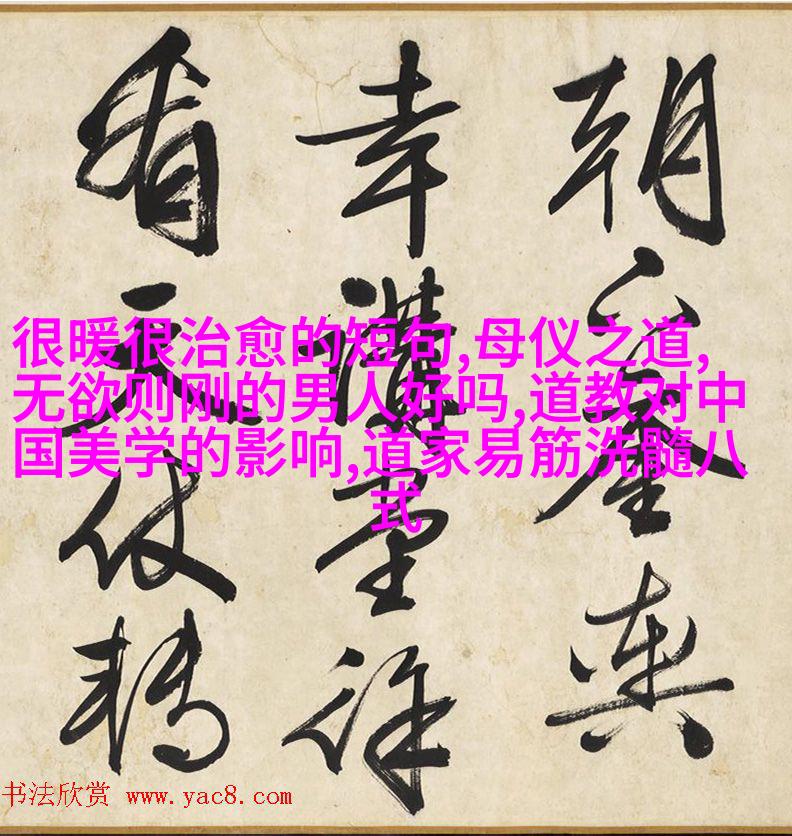 朝銮輿
幸講堂徐
看天仗轉
很暖很治愈的短句,母仪之道,
无欲则刚的男人好吗,道教对中
国美学的影响,道家易筋洗髓八
式
书法欣赏 www.yac8.com